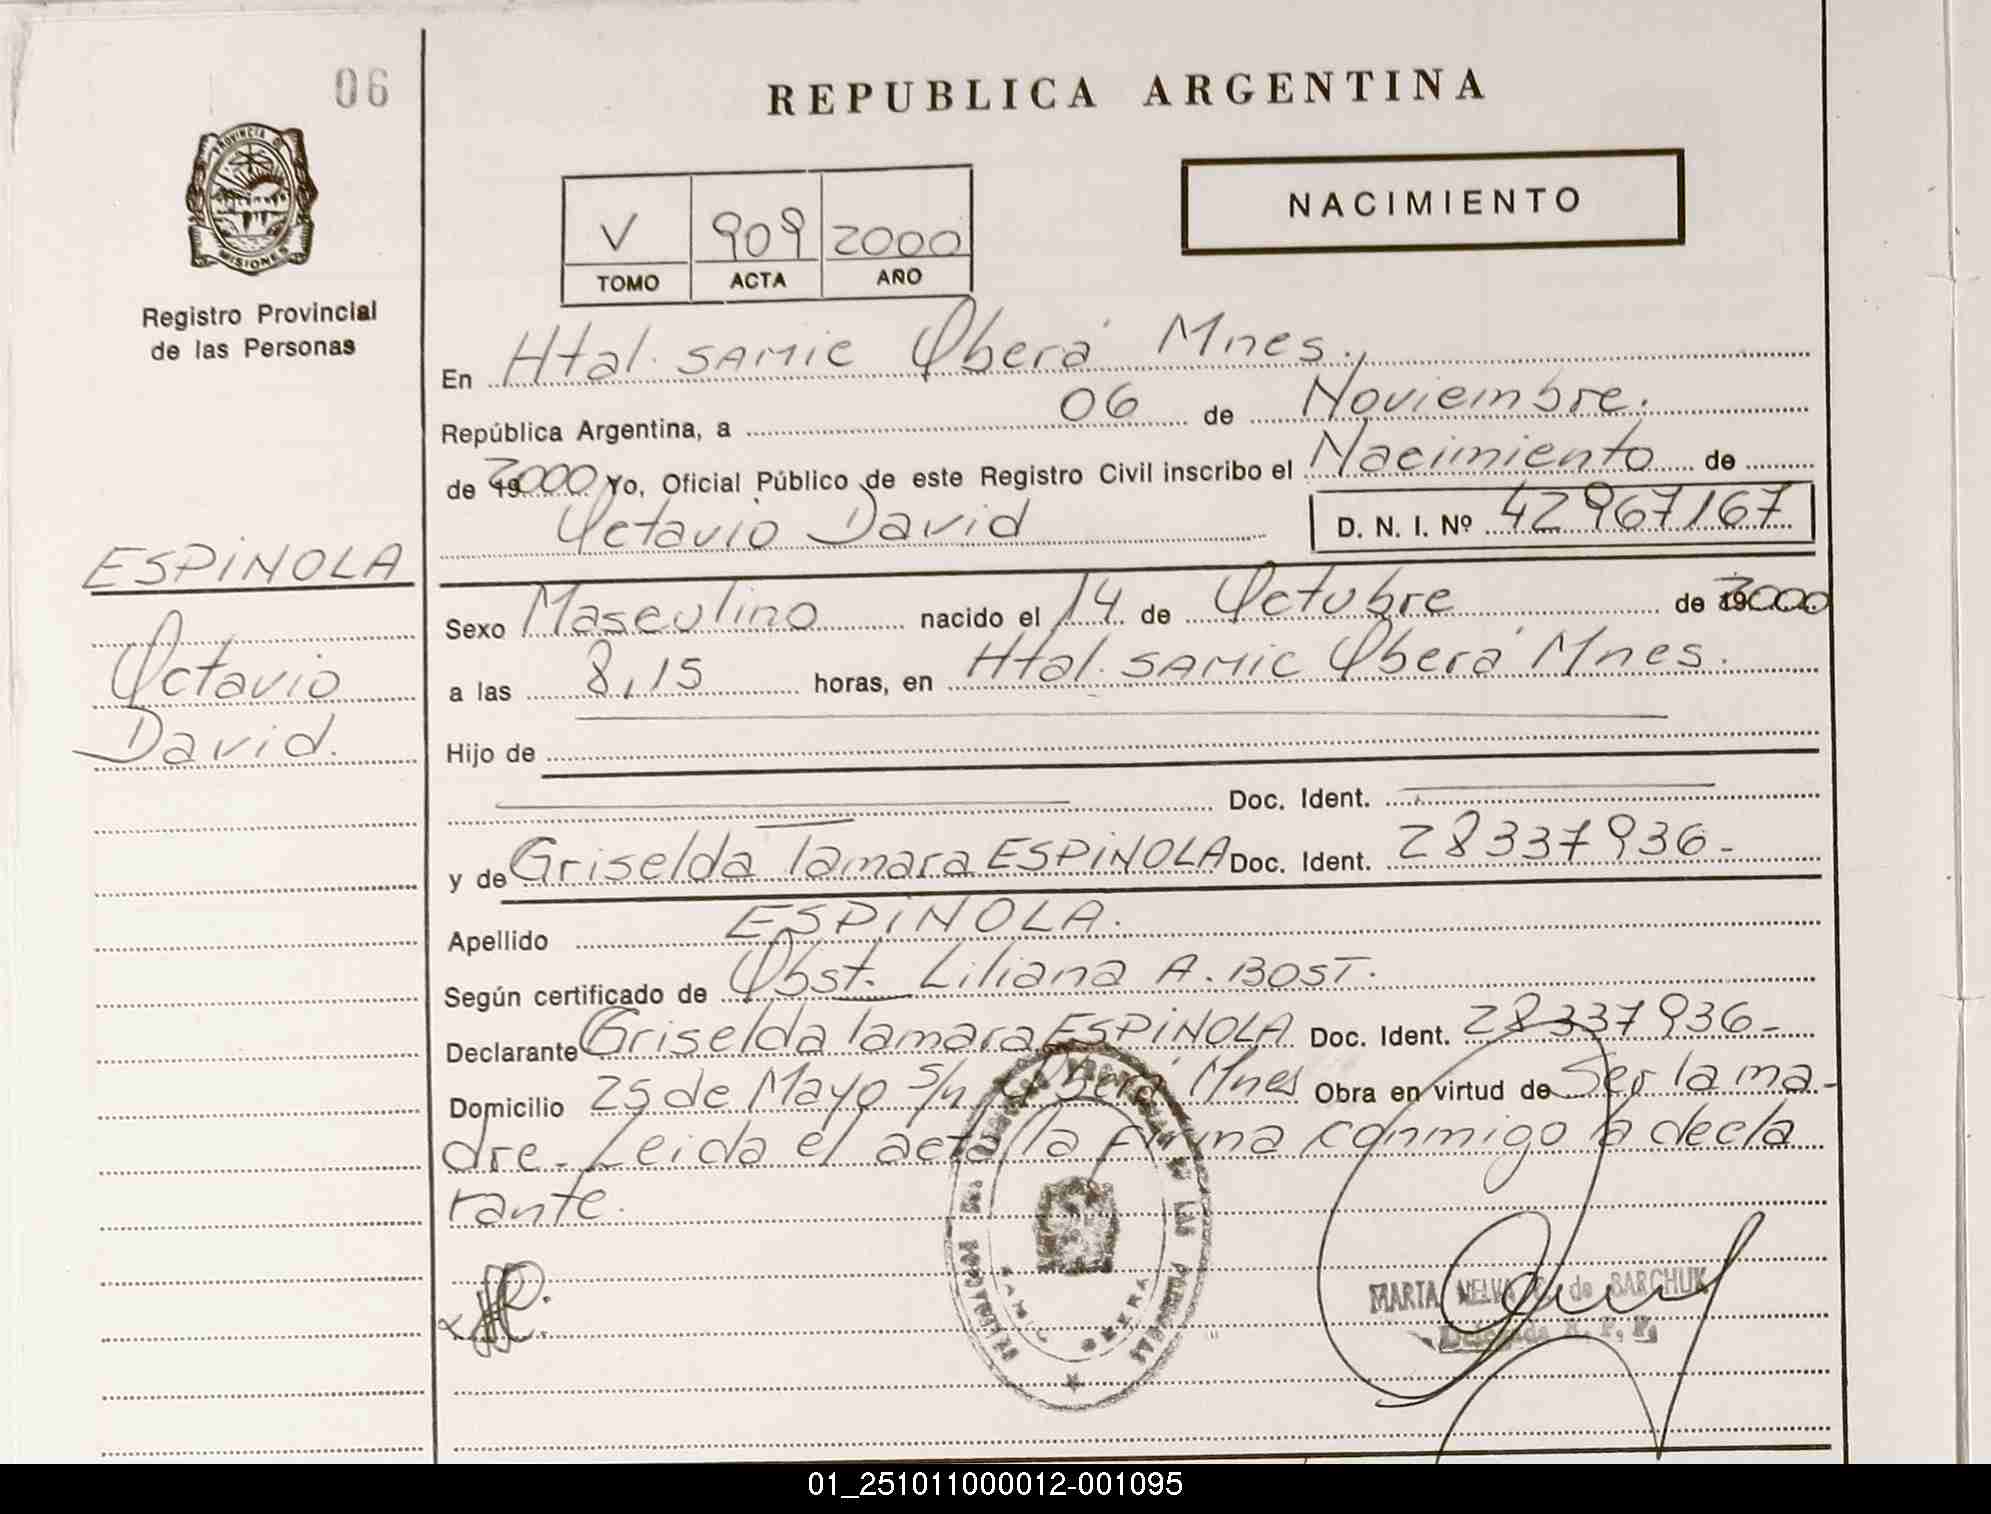 06
REPUBLICA ARGENTINA
PROVINCIA DE
MISIONES
Registro Provincial
de las Personas
NACIMIENTO
V 909 2000
TOMO ACTA AÑO
En Htal. SAMIC Oberá Mnes.,
República Argentina, a 06 de Noviembre.
de 2000 Yo, Oficial Público de este Registro Civil inscribo el Nacimiento de
Octavio David D. N. I. Nº 42967167
ESPINOLA
Octavio
David.
Sexo Masculino nacido el 14 de Octubre de 2000
a las 8,15 horas, en Htal. SAMIC Oberá Mnes.
Hijo de
Doc. Ident.
y de Griselda Tamara ESPINOLA Doc. Ident. 28337936-
Apellido ESPINOLA.
Según certificado de Obst. Liliana A. BOST.
Declarante Griselda Tamara ESPINOLA Doc. Ident. 28337936-
Domicilio 25 de Mayo s/n Oberá Mnes Obra en virtud de Ser la ma-
dre. Leida el acta la firma conmigo la decla
rante.
DE LAS PERSONAS
SAMIC OBERA
MARTA MELVA de BARCHUK
Delegada R. P. P.
01_251011000012-001095